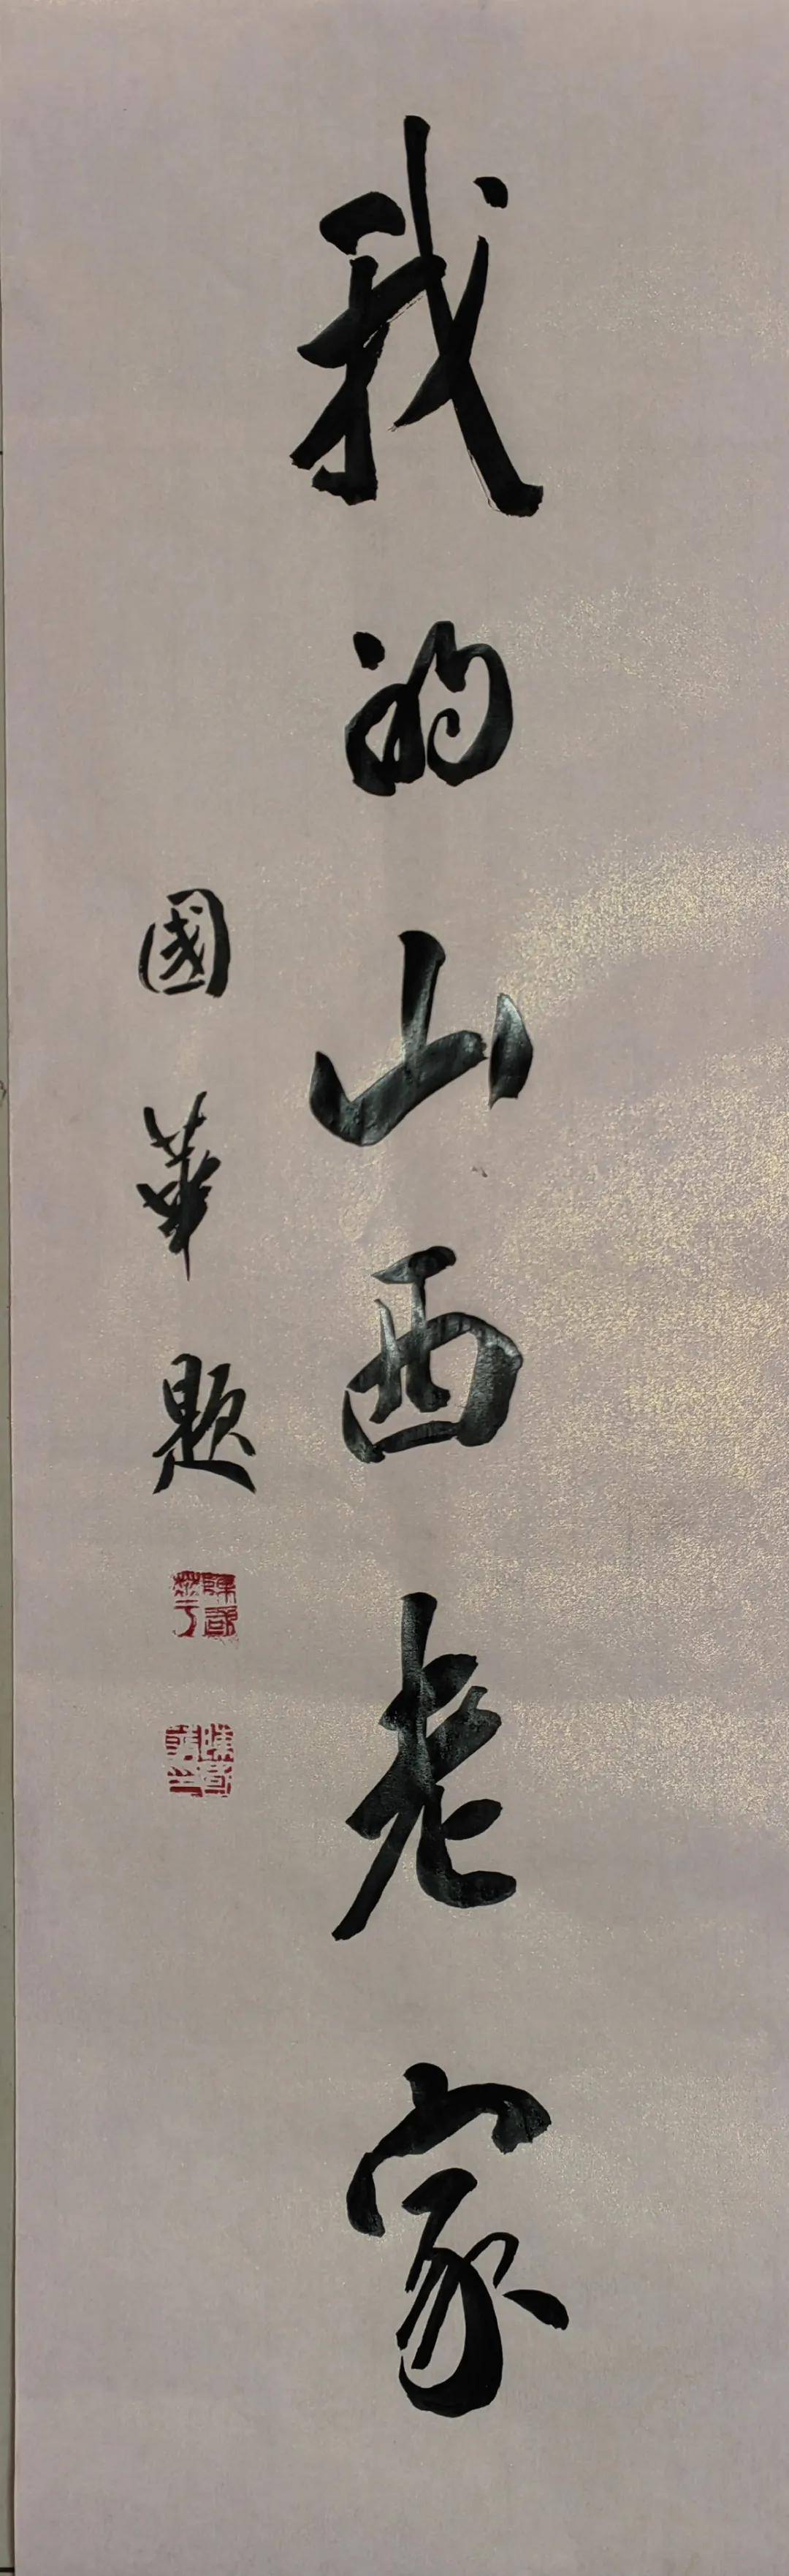 我的山西老家
國華題